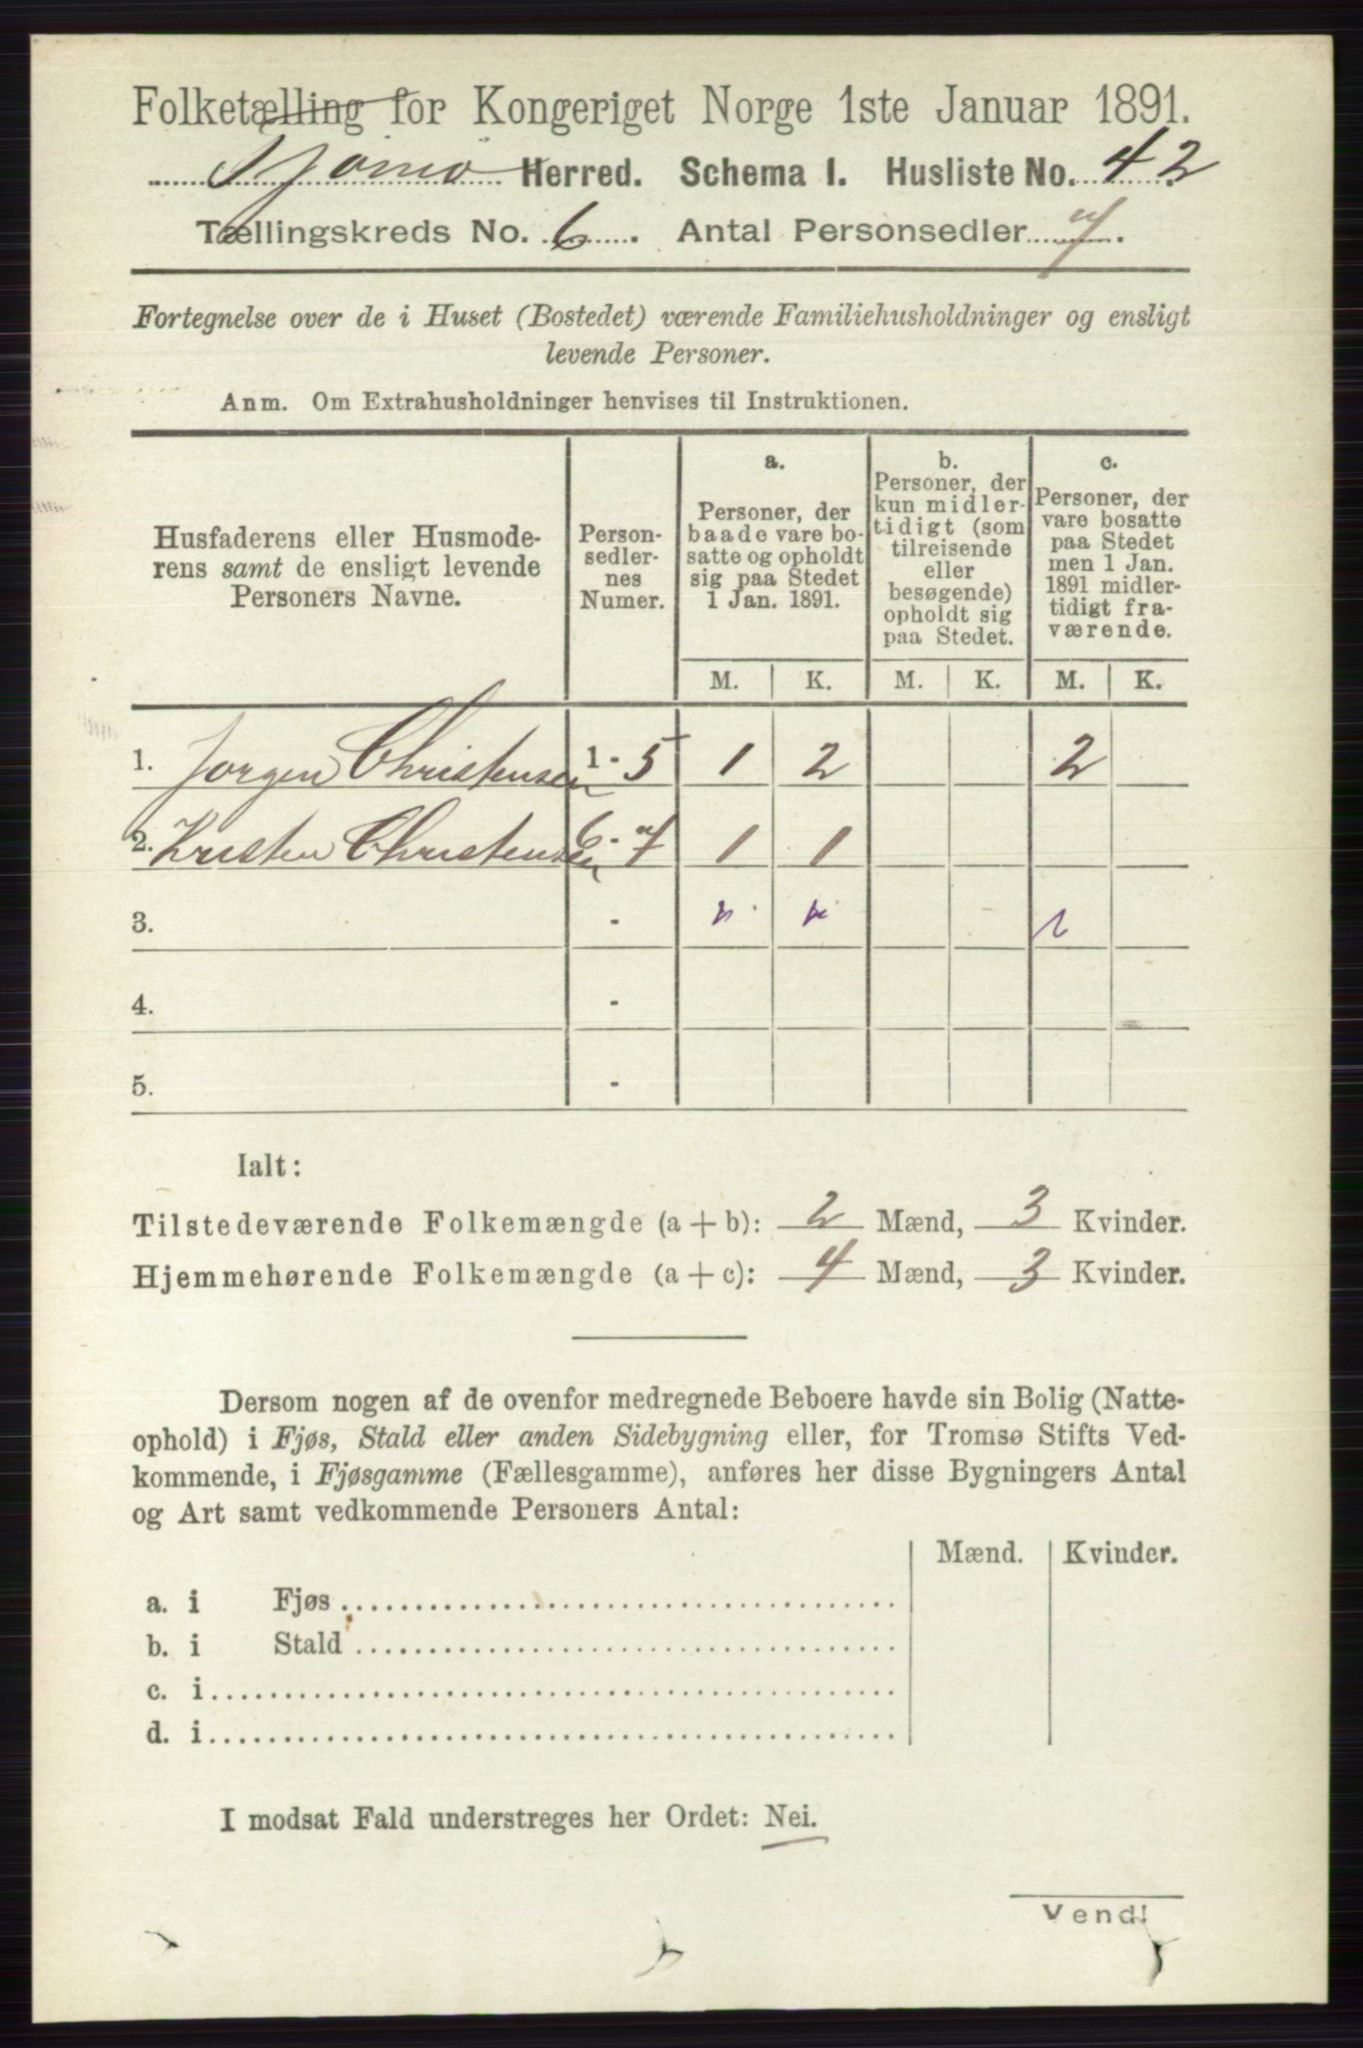 Folketælling for Kongeriget Norge 1ste Januar 1891.
Tjømø Herred. Schema I. Husliste No. 42
Tællingskreds No. 6. Antal Personsedler 7.
Fortegnelse over de i Huset (Bostedet) værende Familiehusholdninger og ensligt
levende Personer.
Anm. Om Extrahusholdninger henvises til Instruktionen.
Husfaderens eller Husmode-
rens samt de ensligt levende
Personers Navne.
Person-
sedler-
nes
Numer.
a.
Personer, der
baade vare bo-
satte og opholdt
sig paa Stedet
1 Jan. 1891.
b.
Personer, der
kun midler-
tidigt (som
tilreisende
eller
besøgende)
opholdt sig
paa Stedet.
c.
Personer, der
vare bosatte
paa Stedet
men 1 Jan.
1891 midler-
tidigt fra-
værende.
M. K. M. K. M. K.
1. Jorgen Christensen 1-5 1 2 2
2. Kristen Christensen 6-7 1 1
3. -
4. -
5. -
Ialt:
Tilstedeværende Folkemængde (a + b): 2 Mænd, 3 Kvinder.
Hjemmehørende Folkemængde (a + c): 4 Mænd, 3 Kvinder.
Dersom nogen af de ovenfor medregnede Beboere havde sin Bolig (Natte-
ophold) i Fjøs, Stald eller anden Sidebygning eller, for Tromsø Stifts Ved-
kommende, i Fjøsgamme (Fællesgamme), anføres her disse Bygningers Antal
og Art samt vedkommende Personers Antal:
Mænd. Kvinder.
a. i Fjøs
b. i Stald
c. i
d. i
I modsat Fald understreges her Ordet: Nei.
Vend!